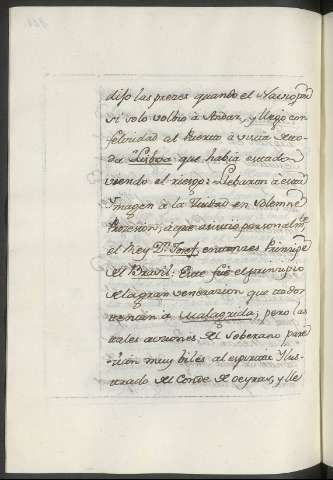 dijo las preces quando el Navio por
si solo volbió à Andar, y llegó con
felicidad al Puerto à vista de to-
da Lisboa que habia estado
viendo el riesgo: Llebaron à esta
Imagen à la Ciudad en solemne
Procesion, à que asistio personalmte
el Rey Dn. Josef, entonces Principe
del Brasil: Este fué el principio
de la gran veneracion que todos
tenian à Malagrida; pero las
tales acciones del Soberano pare-
cian muy biles al espiritu Ilus-
trado del Conde de Oeyras, y lle